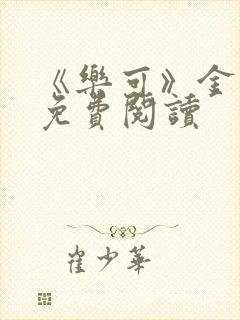 《樂可》金
免費閱讀
崔少華